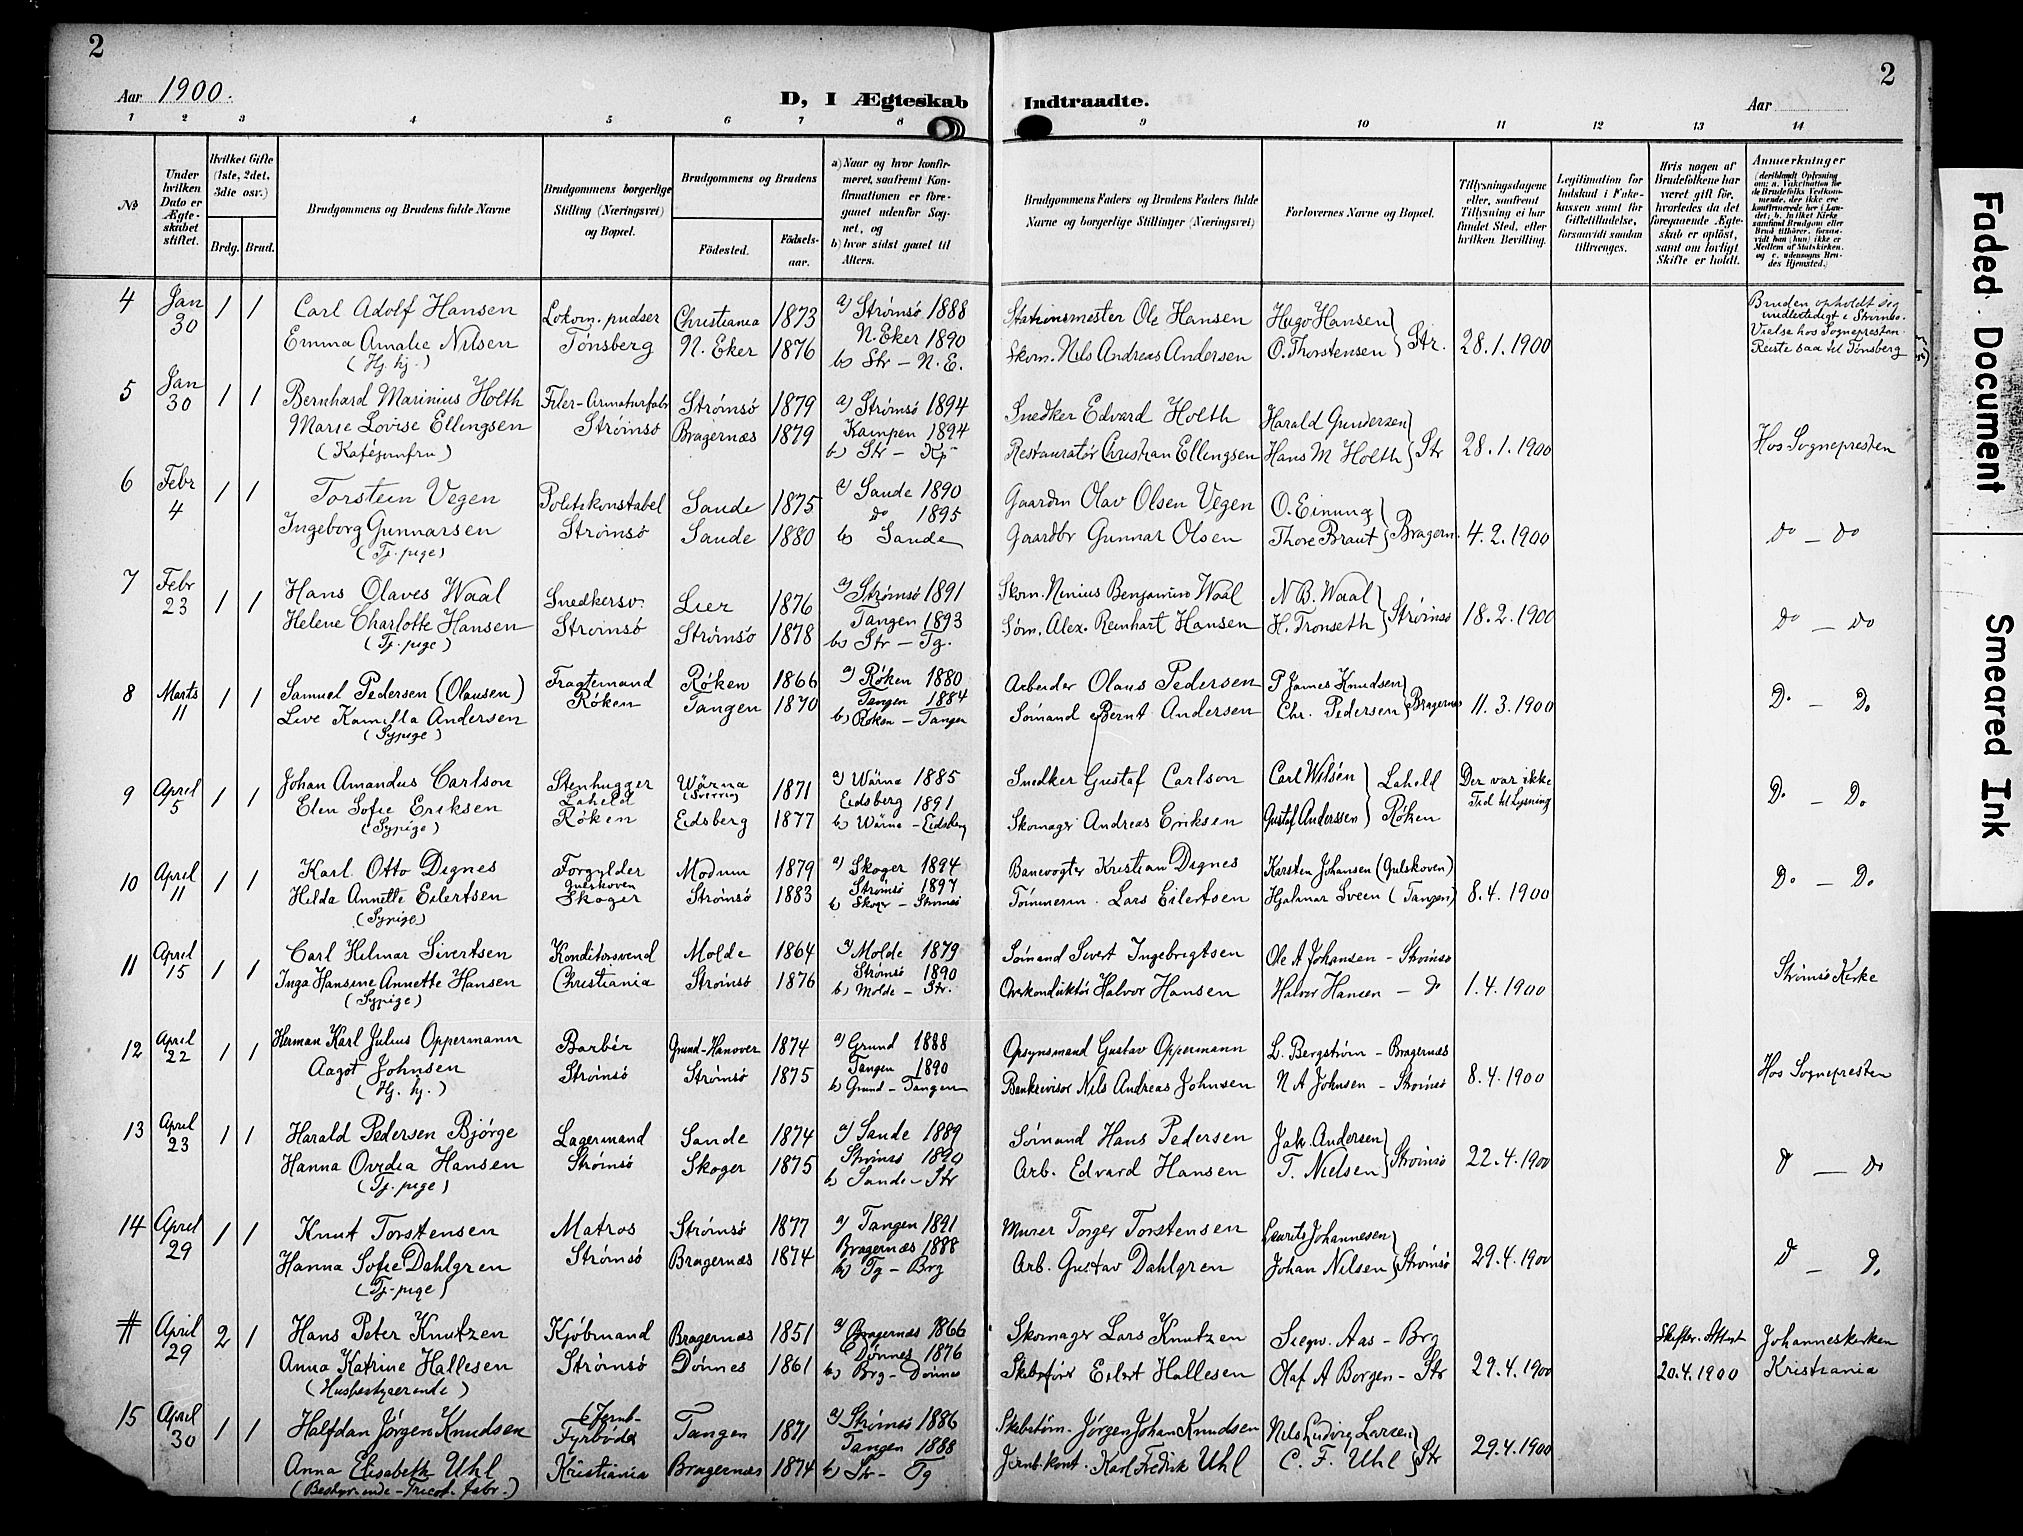 2
Aar 1900.
D, I Ægteskab Indtraadte.
Aar
2
1 2 3 4 5 6 7 8 9 10 11 12 13 14
No
Under hvilken Dato er Ægteskabet stiftet.
Hvilket Gifte (1ste, 2det, 3die osv.)
Brdg. Brud.
Brudgommens og Brudens fulde Navne
Brudgommens borgerlige Stilling (Næringsvei) og Bopæl.
Brudgommens og Brudens
Fødested. Fødselsaar.
a) Naar og hvor konfirmeret, saafremt Konfirmationen er foregaaet udenfor Sognet, og
b) hvor sidst gaaet til Alters.
Brudgommens Faders og Brudens Faders fulde Navne og borgerlige Stillinger (Næringsvei)
Forlovernes Navne og Bopæl.
Tillysningsdagene eller, saafremt Tillysning ei har fundet Sted, efter hvilken Bevilling.
Legitimation for Indskud i Enkekassen samt for Giftetilladelse, forsaavidt saadan tiltrænges.
Hvis nogen af Brudefolkene har været gift før, hvorledes da det foregaaende Ægteskab er opløst, samt om lovligt Skifte er holdt.
Anmerkninger (deriblandt Oplysning om: a. Vakcination for de Brudefolks Vedkommende, der ikke ere konfirmerede her i Landet; b. hvilket Kirkesamfund Brudgom eller Brud tilhører, forsaavidt han (hun) ikke er Medlem af Statskirken, og c. udensogns Brudes Hjemsted.)
4 Jan 30 1 1 Carl Adolf Hansen Lokom. pudser Christiania 1873 a) Strømsø 1888 Stationsmester Ole Hansen Hugo Hansen
Emma Amalie Nilsen Tønsberg N. Eker 1876 N. Eker 1890 Skom. Nils Andreas Andersen O. Thorstensen Str. 28.1.1900
(Hj. hj.) b) Str – N. E.
Bruden opholdt sig midlertidigt i Strømsø. Vielse hos Sognepresten. Reiste saa til Tønsberg
5 Jan 30 1 1 Bernhard Marinius Holth Filer-Armaturfabr Strømsø 1879 a) Strømsø 1894 Snedker Edvard Holth Harald Gundersen
Marie Lovise Ellingsen Strømsø Bragernæs 1879 Kampen 1894 Restauratør Christian Ellingsen Hans M Holth Str 28.1.1900 Hos Sognepresten
(Kaféjomfru) b) Str – Kp
6 Febr 4 1 1 Torstein Vegen Politikonstabel Sande 1875 a) Sande 1890 Gaardm Olav Olsen Vegen O. Einung
Ingeborg Gunnarsen Strømsø Sande 1880 do 1895 Gaardbr Gunnar Olsen Thore Braut Bragern. 4.2.1900 do – do
(Tj. pige) b) Sande
7 Febr 23 1 1 Hans Olaves Waal Snedkersv. Lier 1876 a) Strømsø 1891 Skom. Ninius Benjamin Waal N B. Waal
Helene Charlotte Hansen Strømsø Strømsø 1878 Tangen 1893 Søm. Alex. Reinhart Hansen H. Tronseth Strømsø 18.2.1900 do – do
(Tj. pige) b) Str – Tg.
8 Marts 11 1 1 Samuel Pedersen (Olausen) Fragtemand Røken 1866 a) Røken 1880 Arbeider Olaus Pedersen P James Knudsen
Live Kamilla Andersen Røken Tangen 1870 Tangen 1884 Sømand Bernt Andersen Chr. Pedersen Bragernes 11.3.1900 Do – Do
(Sypige) b) Røken – Tangen
9 April 5 1 1 Johan Amandus Carlson Stenhugger Wärna (Sverrig) 1871 a) Wärna 1885 Snedker Gustaf Carlson Carl Wilsén Lahell Der var ikke Tid til Lysning
Elen Sofie Eriksen Lahell Røken Eidsberg 1877 Eidsberg 1891 Skomager Andreas Eriksen Gustaf Anderssen Røken Do – Do
(Sypige) b) Wärna – Eidsberg
10 April 11 1 1 Karl Otto Dignes Forgylder Modum 1879 a) Skoger 1894 Banevogter Kristian Dignes Karsten Johansen (Gulskoven)
Hilda Annette Eilertsen Gulskoven Skoger Strømsø 1883 Strømsø 1897 Tømmerm. Lars Eilertsen Hjalmar Sveen (Tangen) 8.4.1900 Do – Do
(Sypige) b) Skoger – Strømsø
11 April 15 1 1 Carl Hilmar Sivertsen Konditorsvend Molde 1864 a) Molde 1879 Sømand Sivert Ingebrigtsen Ole A Johansen – Strømsø
Inga Hansine Annette Hansen Christiania Strømsø 1876 Strømsø 1890 Overkonduktør Halvor Hansen Halvor Hansen – do 1.4.1900 Strømsø Kirke
(Sypige) b) Molde – Str.
12 April 22 1 1 Herman Karl Julius Oppermann Barbér Grund-Hanover 1874 a) Grund 1888 Opsynsmand Gustav Oppermann L. Bergstrøm – Bragernæs
Aagot Johnsen Strømsø Strømsø 1875 Tangen 1890 Bankrevisor Nils Andreas Johnsen N A Johnsen – Strømsø 8.4.1900 Hos Sognepresten
(Hj. hj.) b) Grund – Tangen
13 April 23 1 1 Harald Pedersen Bjørge Lagermand Sande 1874 a) Sande 1889 Sømand Hans Pedersen Jak. Andersen
Hanna Ovedia Hansen Strømsø Skoger 1875 Strømsø 1890 Arb. Edvard Hansen T. Nielsen Strømsø 22.4.1900 do – do
(Tj. pige) b) Sande – Str
14 April 29 1 1 Knut Torstensen Matros Strømsø 1877 a) Tangen 1891 Murer Torger Torstensen Laurits Johannesen
Hanna Sofie Dahlgren Strømsø Bragernæs 1874 Bragernæs 1888 Arb. Gustav Dahlgren Johan Nilsen Strømsø 29.4.1900 do – do
(Tj. pige) b) Tg – Brg
# April 29 2 1 Hans Peter Knutzen Kjøbmand Bragernæs 1851 a) Bragernæs 1866 Skomager Lars Knutzen Siegw. Aas – Brg Skifter. Attest Johanneskirken
Anna Katrine Hallesen Strømsø Dønnes 1861 Dønnes 1876 Skibsfører Eilert Hallesen Olaf A Borgen – Str 29.4.1900 20.4.1900 Kristiania
(Husbestyrerinde) b) Brg – Dønnes
15 April 30 1 1 Halfdan Jørgen Knudsen (Jernb- Fyrbøder Tangen 1871 a) Strømsø 1886 Skibstøm. Jørgen Johan Knudsen Nils Ludvig Larsen
Anna Elisabeth Uhl Kristiania Bragernæs 1874 Tangen 1888 Jernb.kont. Karl Fredrik Uhl C. F. Uhl Str 29.4.1900
(Bestyrerinde – Tricot. fabr.) b) Str – Tg
Faded Document
Smeared Ink